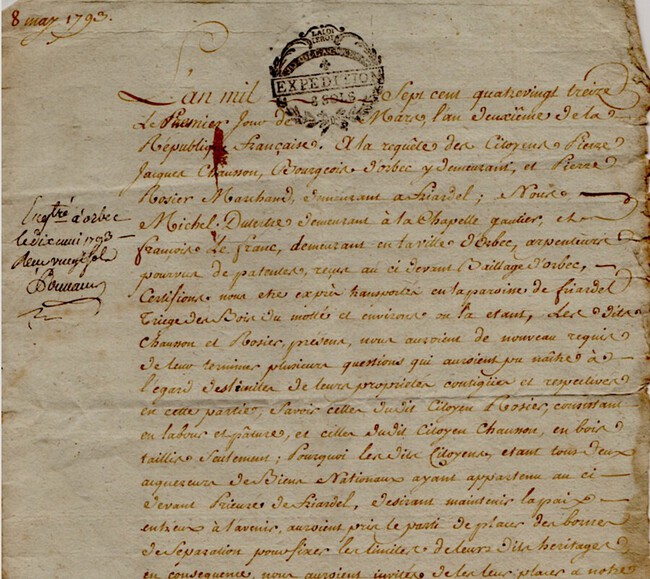 8 may 1793.
LA LOI
LE ROI
EXPEDITION
8 SOLS
L'an mil Sept cent quatrevingt treize
Le Premier Jour de Mars l'an deuxiême de la
République française. A la requête des Citoyens Pierre
Jacques Chausson, Bourgeois d'orbec y demeurant, et Pierre
Rosier Marchand, demeurant a friardel; Nous
Michel Dutertre demeurant à la Chapelle gautier, et
françois Le franc, demeurant en la ville d'Orbec, arpenteurs
pourvus de patentes, reçus au ci devant Baillage d'orbec,
Certifions nous etre exprès transportés en la paroisse de friardel
Triege des Bois du et environs ou la etant, Les dits
Chausson et Rosier, présens, nous auroient de nouveau requis
de leur terminer plusieurs questions qui auroient pu naître à
l'egard des limites de leurs proprietés contigues et respectives
en cette partie, Savoir celles dudit Citoyen Rosier, consistant
en labour et pâture, et celles dudit Citoyen Chausson, en bois
taillis Seulement; Pourquoi les dits Citoyens, etant tous deux
aquereurs de Biens Nationaux ayant appartenu au ci
devant Prieuré de friardel, desirant maintenir la paix
entr'eux à l'avenir, auroient pris le parti de placer des bornes
de Separation pour fixer les limites de leurs dits heritages
en consequence, nous auroient invités de les leur placer a notre
En^(tré) à orbec
le six mai 1793
Reçu vingt sols